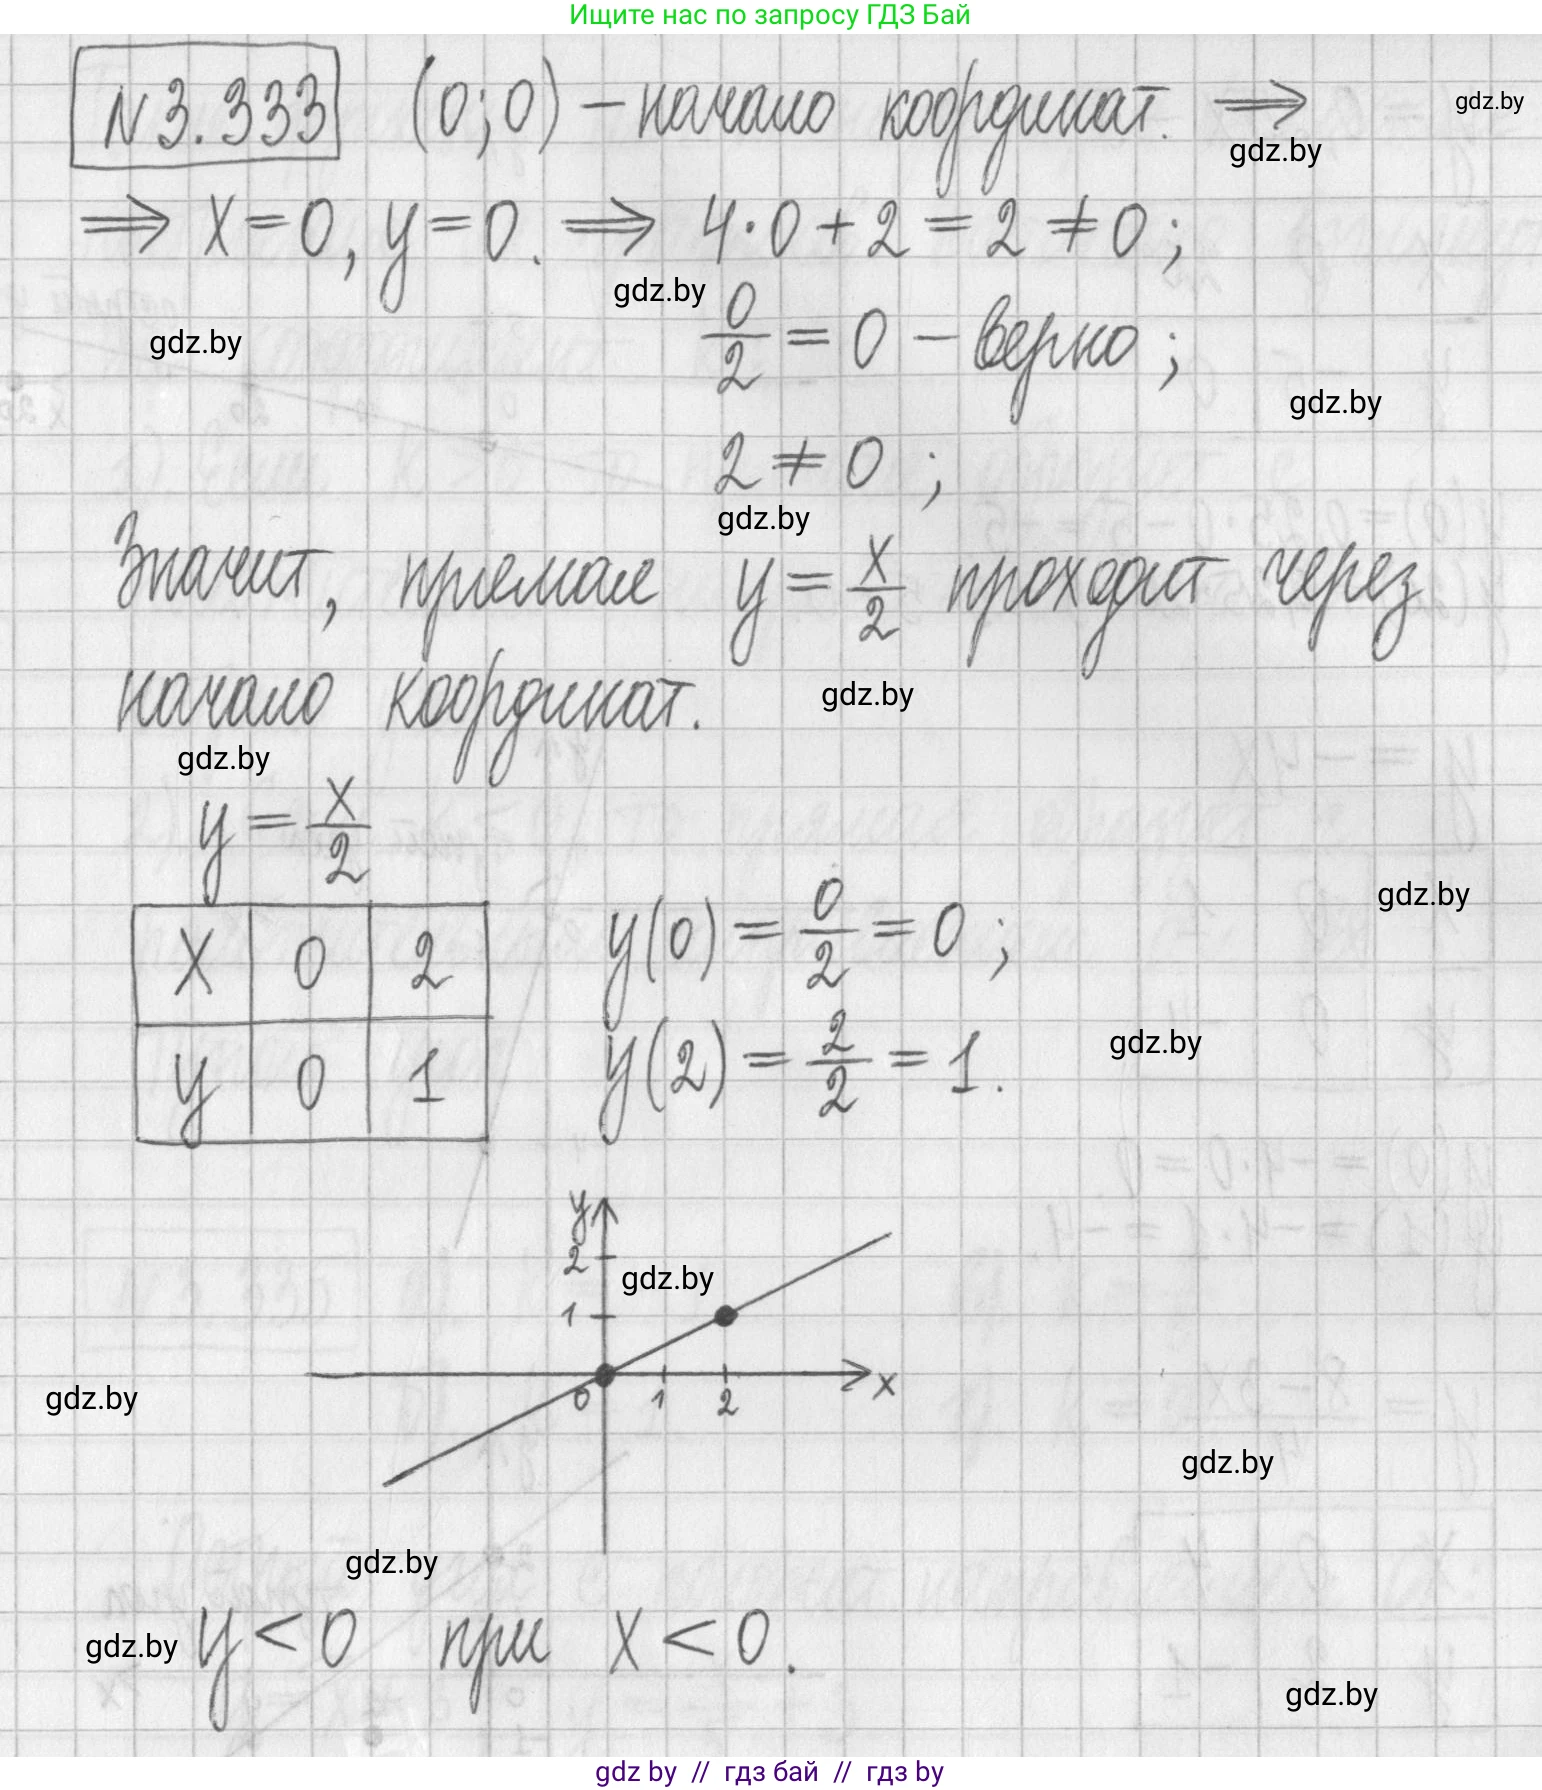 Ищите нас по запросу ГДЗ Бай
N 3.333 (0;0) – начало координат. ⇒
gdz.by
gdz.by
⇒ x = 0, y = 0. ⇒ 4·0 + 2 = 2 ≠ 0 ;
gdz.by
0/2 = 0 – верно ;
gdz.by
gdz.by
2 ≠ 0 ;
gdz.by
Значит, прямая y = x/2 проходит через
начало координат.
gdz.by
gdz.by
y = x/2
gdz.by
x 0 2
y(0) = 0/2 = 0 ;
gdz.by
y 0 1
y(2) = 2/2 = 1.
y
2
gdz.by
1
0 1 2 x
gdz.by
gdz.by
gdz.by
gdz.by
y < 0 при x < 0.
gdz.by
gdz by // гдз бай // гдз by